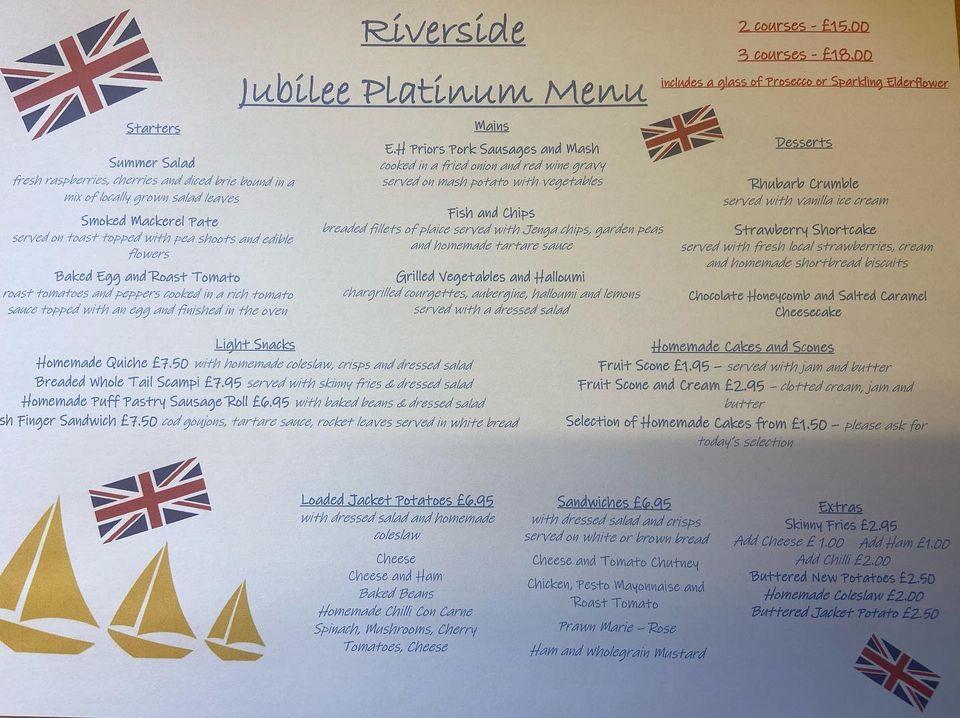 Riverside
Jubilee Platinum Menu
2 courses - £15.00
3 courses - £18.00
includes a glass of Prosecco or Sparkling Elderflower
Starters
Summer Salad
fresh raspberries, cherries and diced brie bound in a
mix of locally grown salad leaves
Smoked Mackerel Pate
served on toast topped with pea shoots and edible
flowers
Baked Egg and Roast Tomato
roast tomatoes and peppers cooked in a rich tomato
sauce topped with an egg and finished in the oven
Mains
E.H Priors Pork Sausages and Mash
cooked in a fried onion and red wine gravy
served on mash potato with vegetables
Fish and Chips
breaded fillets of plaice served with Jenga chips, garden peas
and homemade tartare sauce
Grilled Vegetables and Halloumi
chargrilled courgettes, aubergine, halloumi and lemons
served with a dressed salad
Desserts
Rhubarb Crumble
served with vanilla ice cream
Strawberry Shortcake
served with fresh local strawberries, cream
and homemade shortbread biscuits
Chocolate Honeycomb and Salted Caramel
Cheesecake
Light Snacks
Homemade Quiche £7.50 with homemade coleslaw, crisps and dressed salad
Breaded Whole Tail Scampi £7.95 served with skinny fries & dressed salad
Homemade Puff Pastry Sausage Roll £6.95 with baked beans & dressed salad
sh Finger Sandwich £7.50 cod goujons, tartare sauce, rocket leaves served in white bread
Homemade Cakes and Scones
Fruit Scone £1.95 – served with jam and butter
Fruit Scone and Cream £2.95 – clotted cream, jam and
butter
Selection of Homemade Cakes from £1.50 – please ask for
today's selection
Loaded Jacket Potatoes £6.95
with dressed salad and homemade
coleslaw
Cheese
Cheese and Ham
Baked Beans
Homemade Chilli Con Carne
Spinach, Mushrooms, Cherry
Tomatoes, Cheese
Sandwiches £6.95
with dressed salad and crisps
served on white or brown bread
Cheese and Tomato Chutney
Chicken, Pesto Mayonnaise and
Roast Tomato
Prawn Marie – Rose
Ham and Wholegrain Mustard
Extras
Skinny Fries £2.95
Add Cheese £ 1.00 Add Ham £1.00
Add Chilli £2.00
Buttered New Potatoes £2.50
Homemade Coleslaw £2.00
Buttered Jacket Potato £2.50